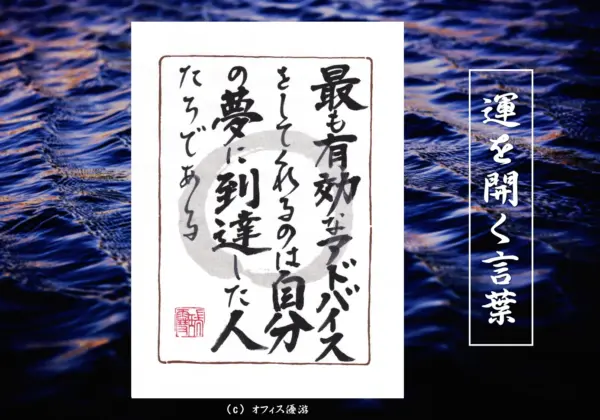 運を開く言葉
最も有効なアドバイス
をしてくれるのは自分
の夢に到達した人
たちである
(C) オフィス優游